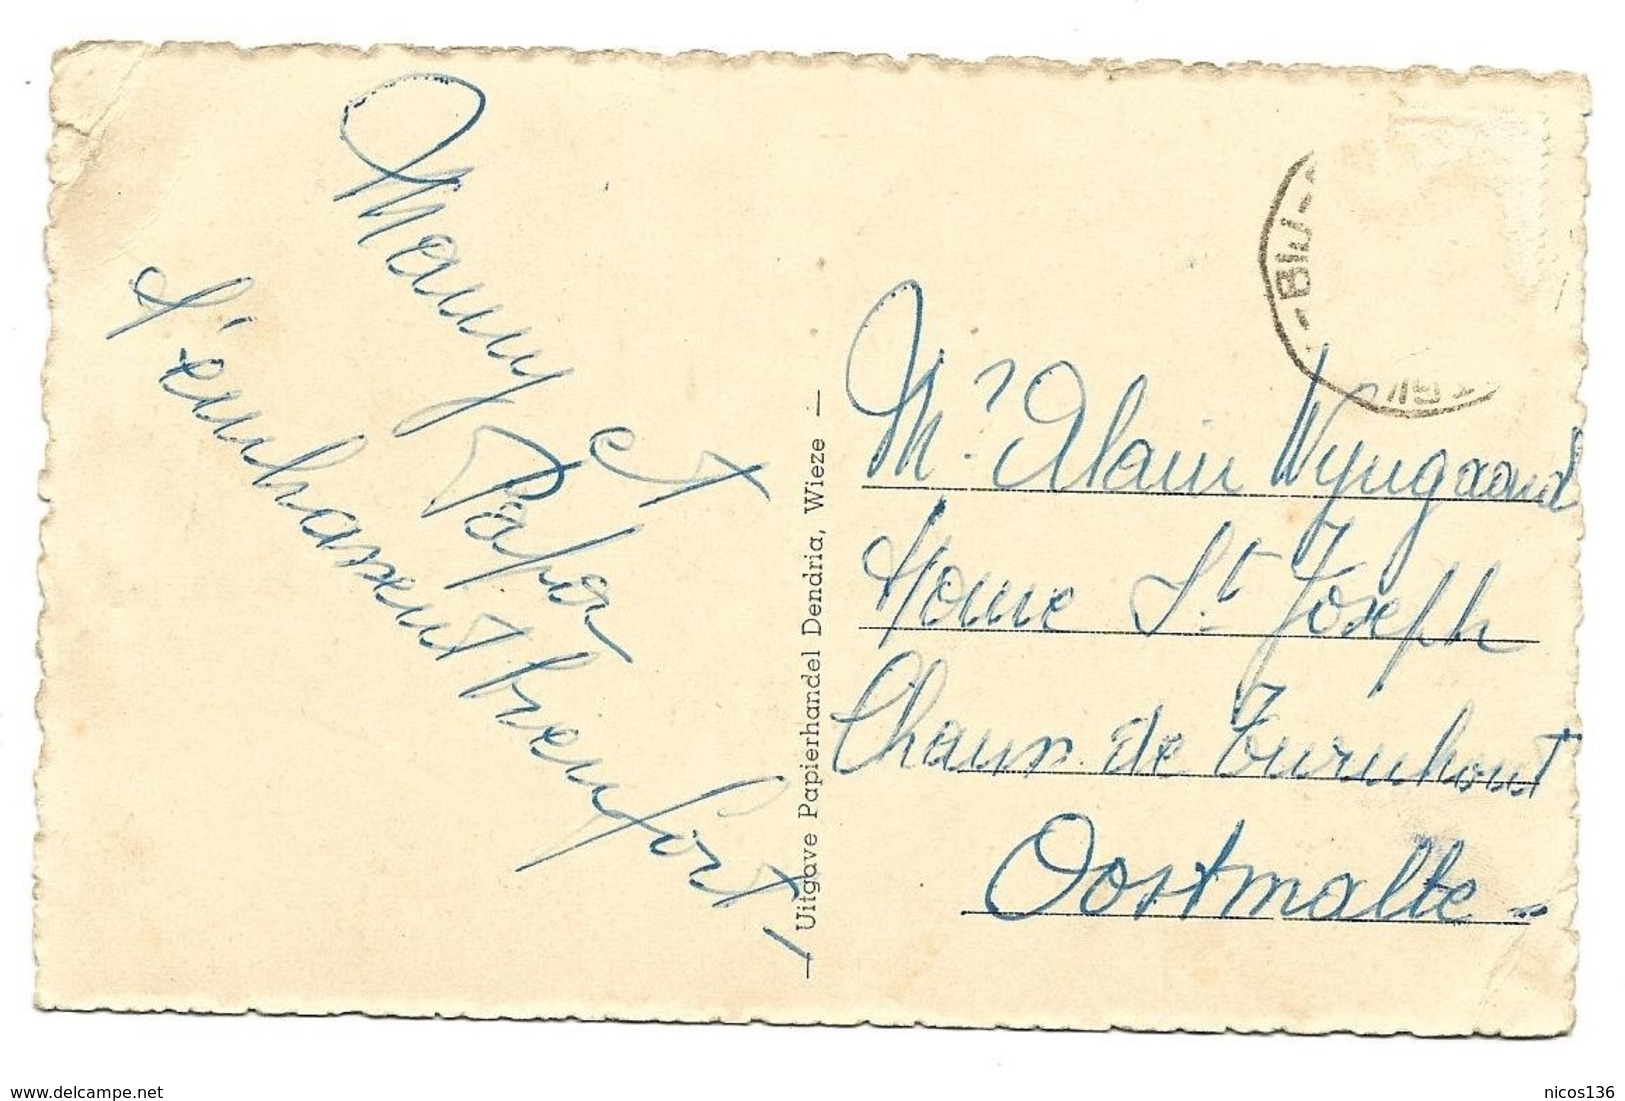 Mamy et
Papa
t'embrassent bien fort -
— Uitgave Papierhandel Dendria, Wieze —
Mr. Alain Wyngaard
Home St Joseph
Chauss. de Turnhout
Oostmalle -
www.delcampe.net
nicos136